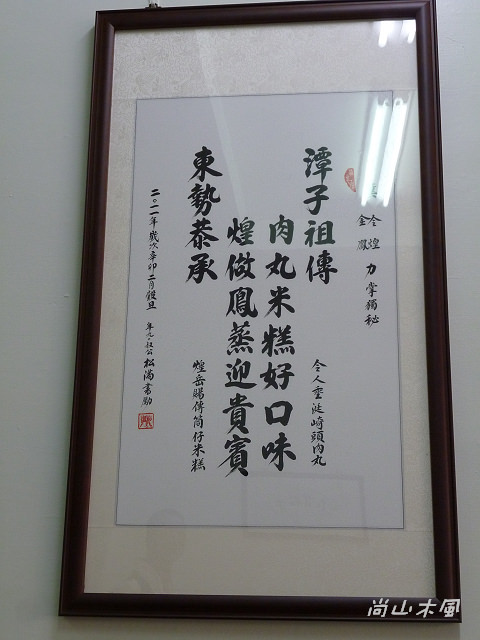 今煌
金鳳
力掌獨秘
潭子祖傳
肉丸米糕好口味
令人垂涎崎頭肉丸
煌做鳳蒸迎貴賓
煌岳賜傳筒仔米糕
東勢恭承
二〇一一年歲次辛卯二月穀旦
年九〇叔公松滿書勵
尚山木風